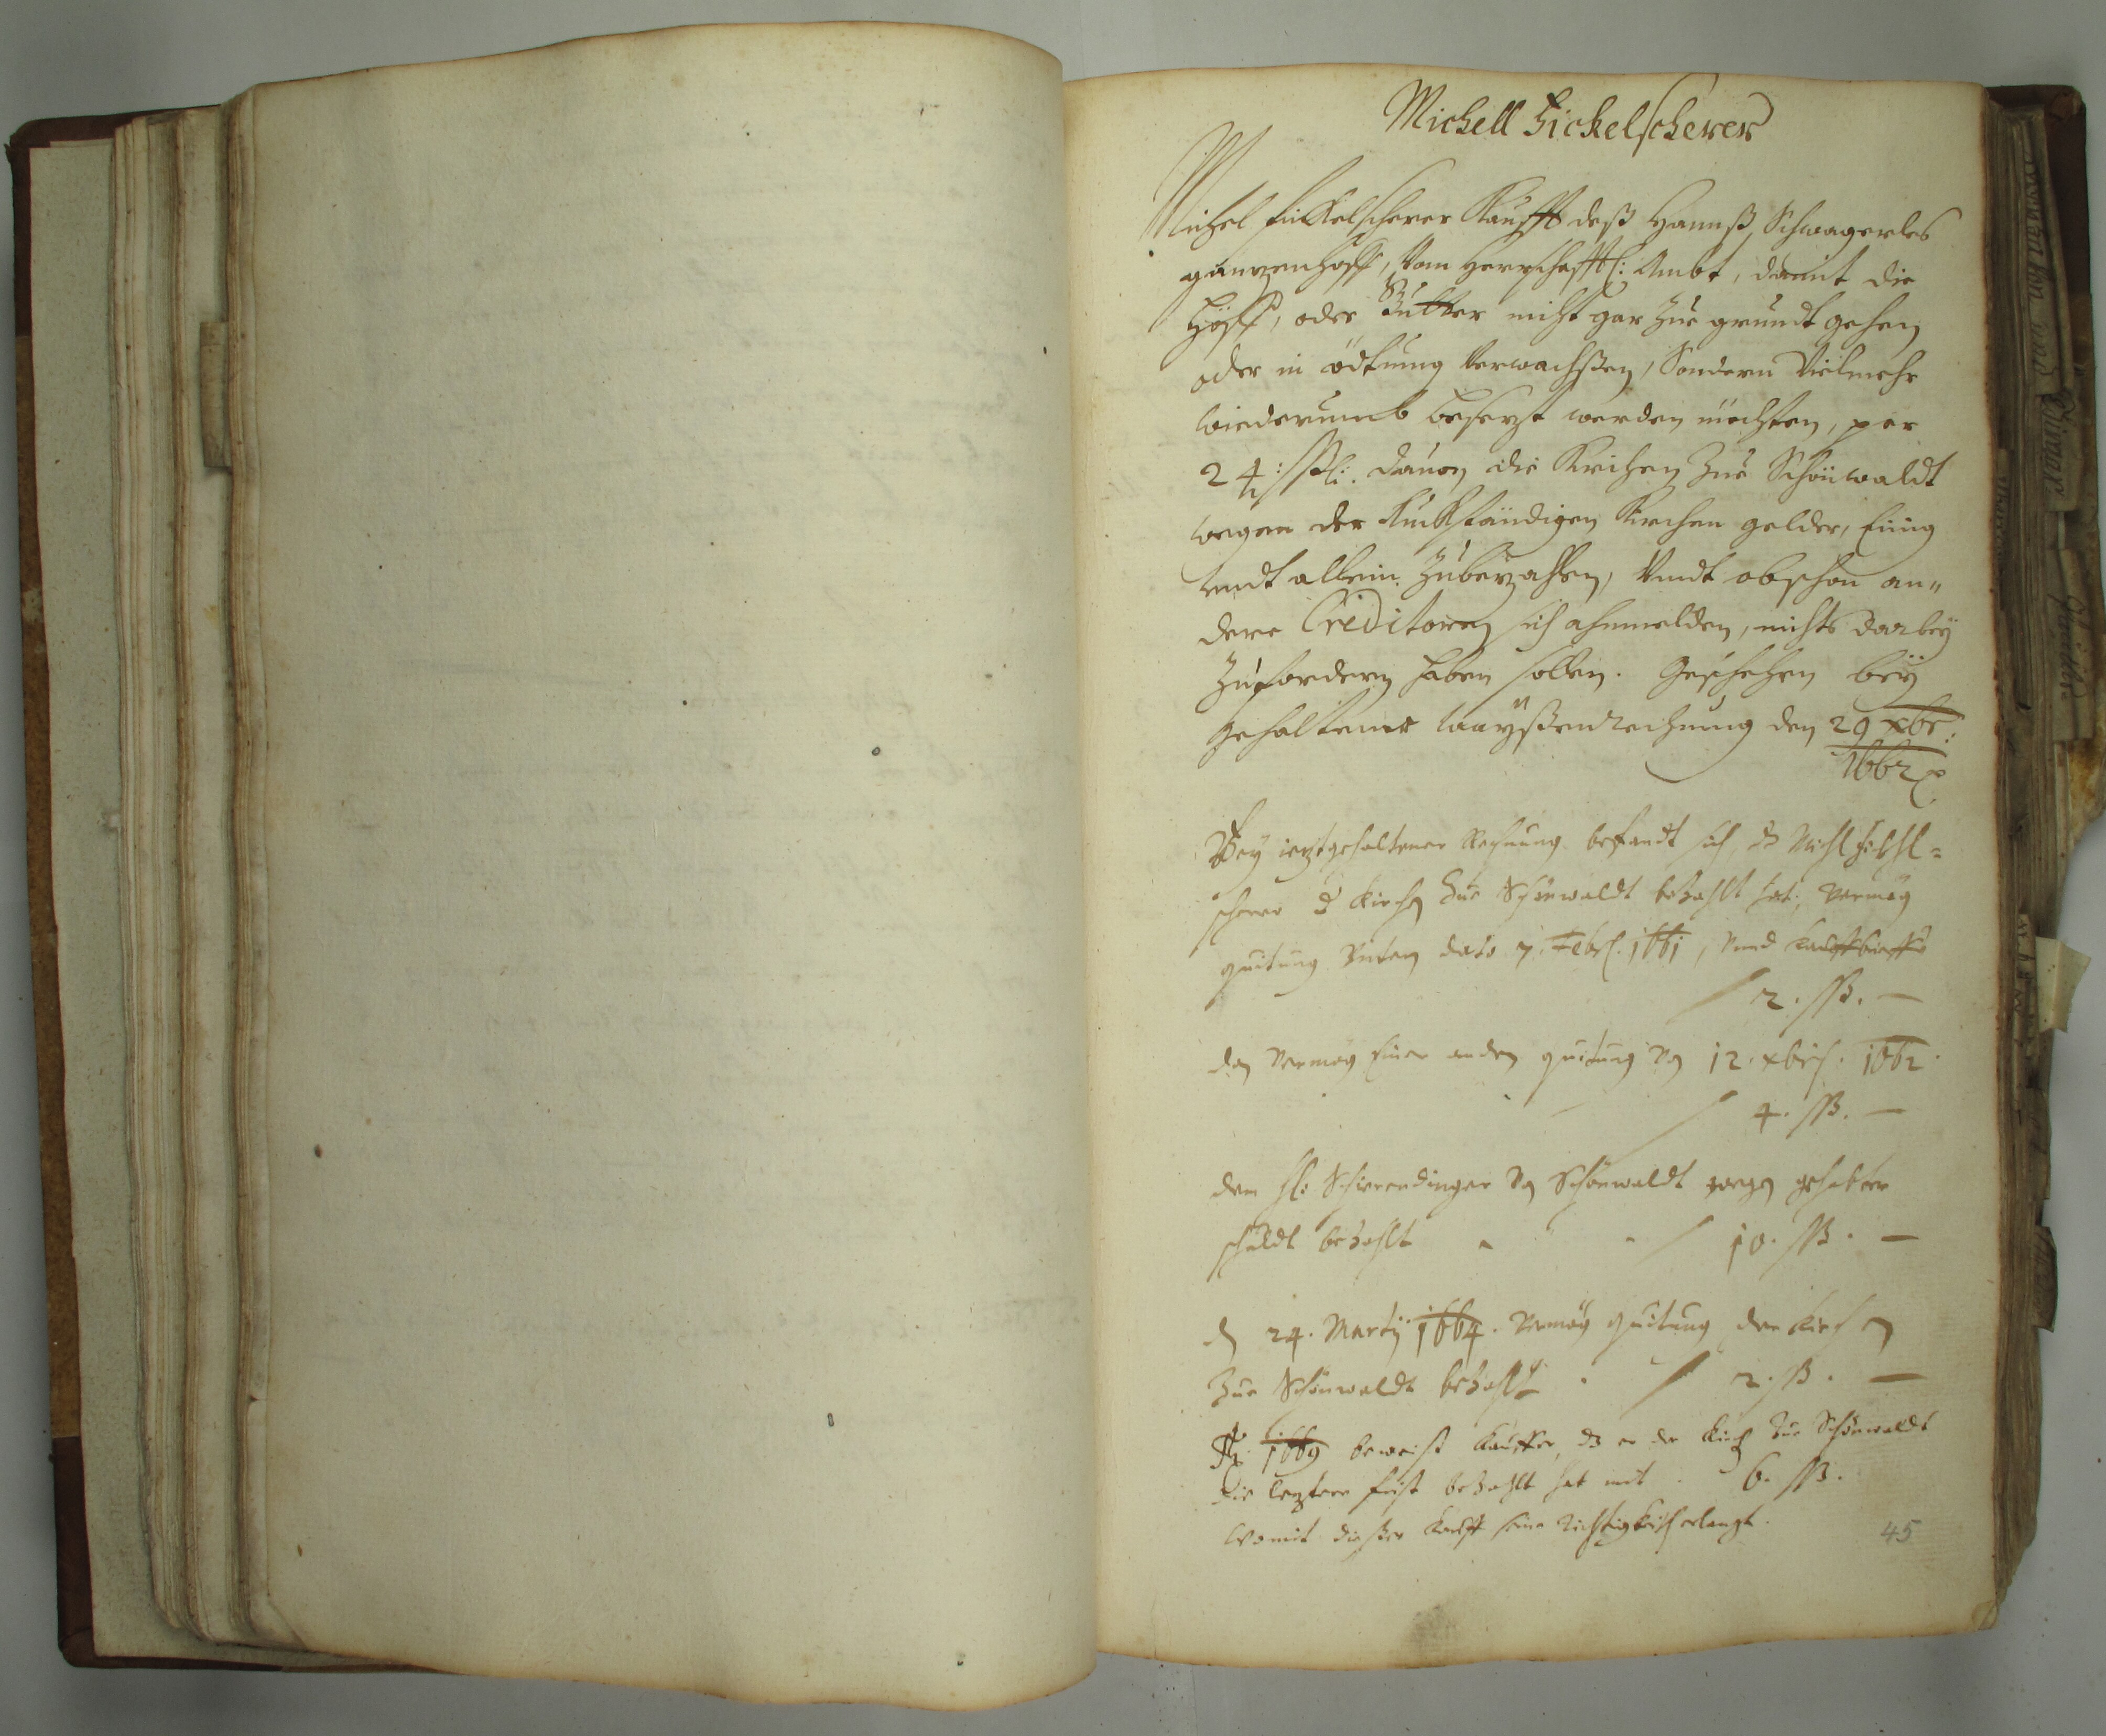 Michell Fickelscherer
Michel Fickelscherer Kaufft deß Hannß Schwagerles
ganzenhoff, Vom Herrschafftl: Ambt, damit die
Höff, oder Gütter nicht gar Zue grundt gehen
oder in ödtung Verwachßen, Sondern Vielmehr
Wiederumb besezt werden möchten, per
24: ßß: dauon die Kirchen Zue Schönwaldt
wegen der Ruckständigen Kirchen gelder, Einig
undt allein Zubezahlen, Vndt obschon an„
dere Creditoren sich ahnmelden, nichts darbey
Zufordern haben sollen. Geschehen bey
gehaltener Wayßenrechnung den 29 xbr:
1662
Bey ieztgehaltener Rechnung befandt sich, dz Michl Fickhl=
scherer d Kirchen Zue Schönwaldt bezahlt hat, Vermög
quitung Vnten dato 7. Febr. 1661, Vnd
2. ßß. —
den Vermög Einer andern quitung Vom 12. xbris. 1662.
4. ßß. —
dem H: Schierendinger Von Schönwaldt wegen gehabter
schuldt bezahlt 10. ßß. —
den 24. Martij 1664. Vermög quitung der Kirchen
Zue Schönwaldt bezahlt 2. ßß. —
1669 beweist Kauffer, dz er der Kirch Zue Schönwaldt
die leztere frist bezahlt hat mit 6. ßß.
Womit dießer Kauff seine Richtigkeit erlangt.
45